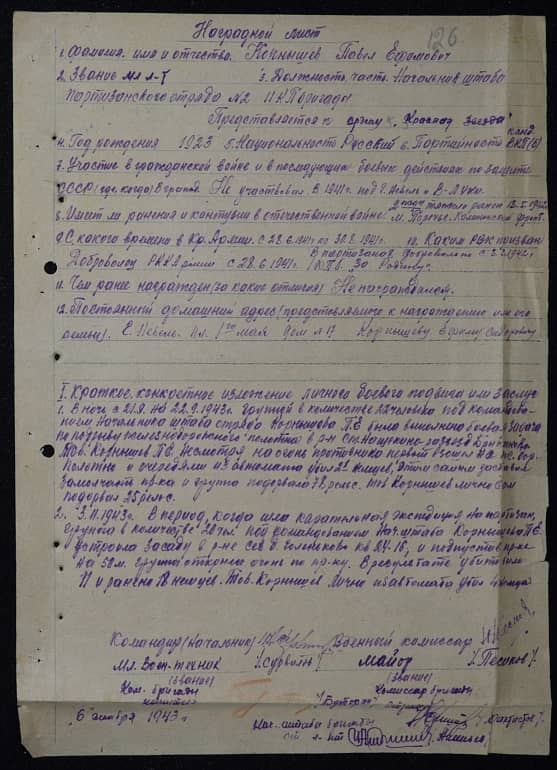 126
Наградной лист
1. Фамилия. имя и отчество. Корнышев Павел Ефимович
2. Звание мл л-т 3. Должность, часть. Начальник штаба
партизанского отряда №2 Бригады
Представляется к ордену "Красная звезда"
4. Год рождения 1923 5. Национальность Русский 6. Партийность канд ВКП(б)
7. Участие в гражданской войне и в последующих боевых действиях по защите
СССР (где, когда) Не участвовал. В 1941г. под г. Невель и В-Луки.
8. Имеет ли ранения и контузии в отечественной войне:
9. С какого времени в Кр. Армии. С 28.6.1941г по 30.8.1941г. 10. Каким РВК призван
Доброволец армии с 28.6.1941г.
11. Чем ранее награжден (за какие отличия) Не награжден.
12. Постоянный домашний адрес (представляемого к награждению или его
семьи). Невель. пл. 1го мая дом №17 Корнышеву Ефиму
I. Краткое, конкретное изложение личного боевого подвига или заслуг
1. В ночь с 21.9. на 22.9.1943г. группой в количестве 22 человека под командова-
нием Начальника штаба отряда Корнышева П.Е была выполнена боевая задача
по подрыву железнодорожного полотна в р-н ст. Нащекино-разъезд
Тов. Корнышев П.Е, несмотря на огонь противника первый взошел на
полотно и очередями из автомата убил 2х немцев, этим самым заставил
замолчать пр-ка и группа подорвала рельс. Тов Корнышев лично сам
подорвал 25 рельс.
2. 3.11.943г. В период, когда шла карательная экспедиция на партизан,
группа в количестве 20 чел под командованием Нач. штаба Корнышева П.Е.
устроила засаду в р-не кв 24-16, и подпустив пр-ка
на 50м. группа открыла огонь по пр-ку. В результате убито
11 и ранено 18 немцев. Тов. Корнышев лично из автомата убил 4 немца
Командир (Начальник) Военный комиссар
Мл. Воен-техник /Сурвило/ майор /Песиков/
(звание) (звание)
Ком. бригады Комиссар бригады
капитан
"6" декабря 1943г. Нач. штаба бригады